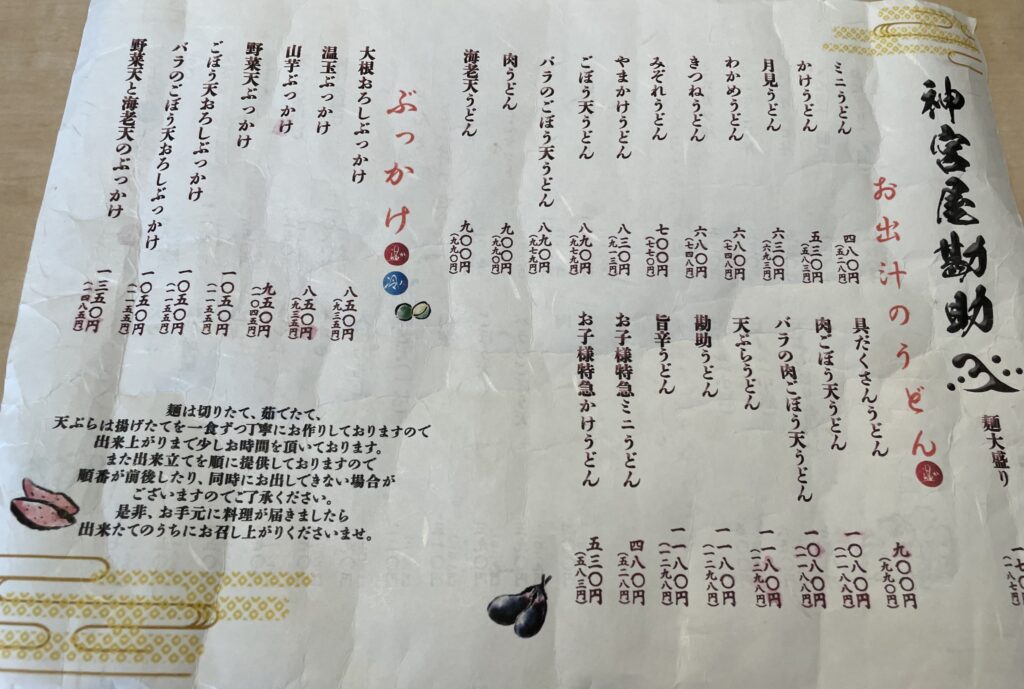 神宮屋勘助
麺大盛り
お出汁のうどん 温
ミニうどん 四八〇円(五二八円)
かけうどん 五三〇円(五八三円)
月見うどん 六三〇円(六九三円)
わかめうどん 六八〇円(七四八円)
きつねうどん 六八〇円(七四八円)
みぞれうどん 七〇〇円(七七〇円)
やまかけうどん 八三〇円(九一三円)
ごぼう天うどん 八九〇円(九七九円)
バラのごぼう天うどん 八九〇円(九七九円)
肉うどん 九〇〇円(九九〇円)
海老天うどん 九〇〇円(九九〇円)
具だくさんうどん 九〇〇円(九九〇円)
肉ごぼう天うどん 一〇八〇円(一一八八円)
バラの肉ごぼう天うどん 一〇八〇円(一一八八円)
天ぷらうどん 一一八〇円(一二九八円)
勘助うどん 一一八〇円(一二九八円)
旨辛うどん 一一八〇円(一二九八円)
お子様特急ミニうどん 四八〇円(五二八円)
お子様特急かけうどん 五三〇円(五八三円)
ぶっかけ 温 冷
大根おろしぶっかけ 八五〇円(九三五円)
温玉ぶっかけ 八五〇円(九三五円)
山芋ぶっかけ 九五〇円(一〇四五円)
野菜天ぶっかけ 一〇五〇円(一一五五円)
ごぼう天おろしぶっかけ 一〇五〇円(一一五五円)
バラのごぼう天おろしぶっかけ 一〇五〇円(一一五五円)
野菜天と海老天のぶっかけ 一三五〇円(一四八五円)
麺は切りたて、茹でたて、
天ぷらは揚げたてを一食ずつ丁寧にお作りしておりますので
出来上がりまで少しお時間を頂いております。
また出来立てを順に提供しておりますので
順番が前後したり、同時にお出しできない場合が
ございますのでご了承ください。
是非、お手元に料理が届きましたら
出来たてのうちにお召し上がりくださいませ。